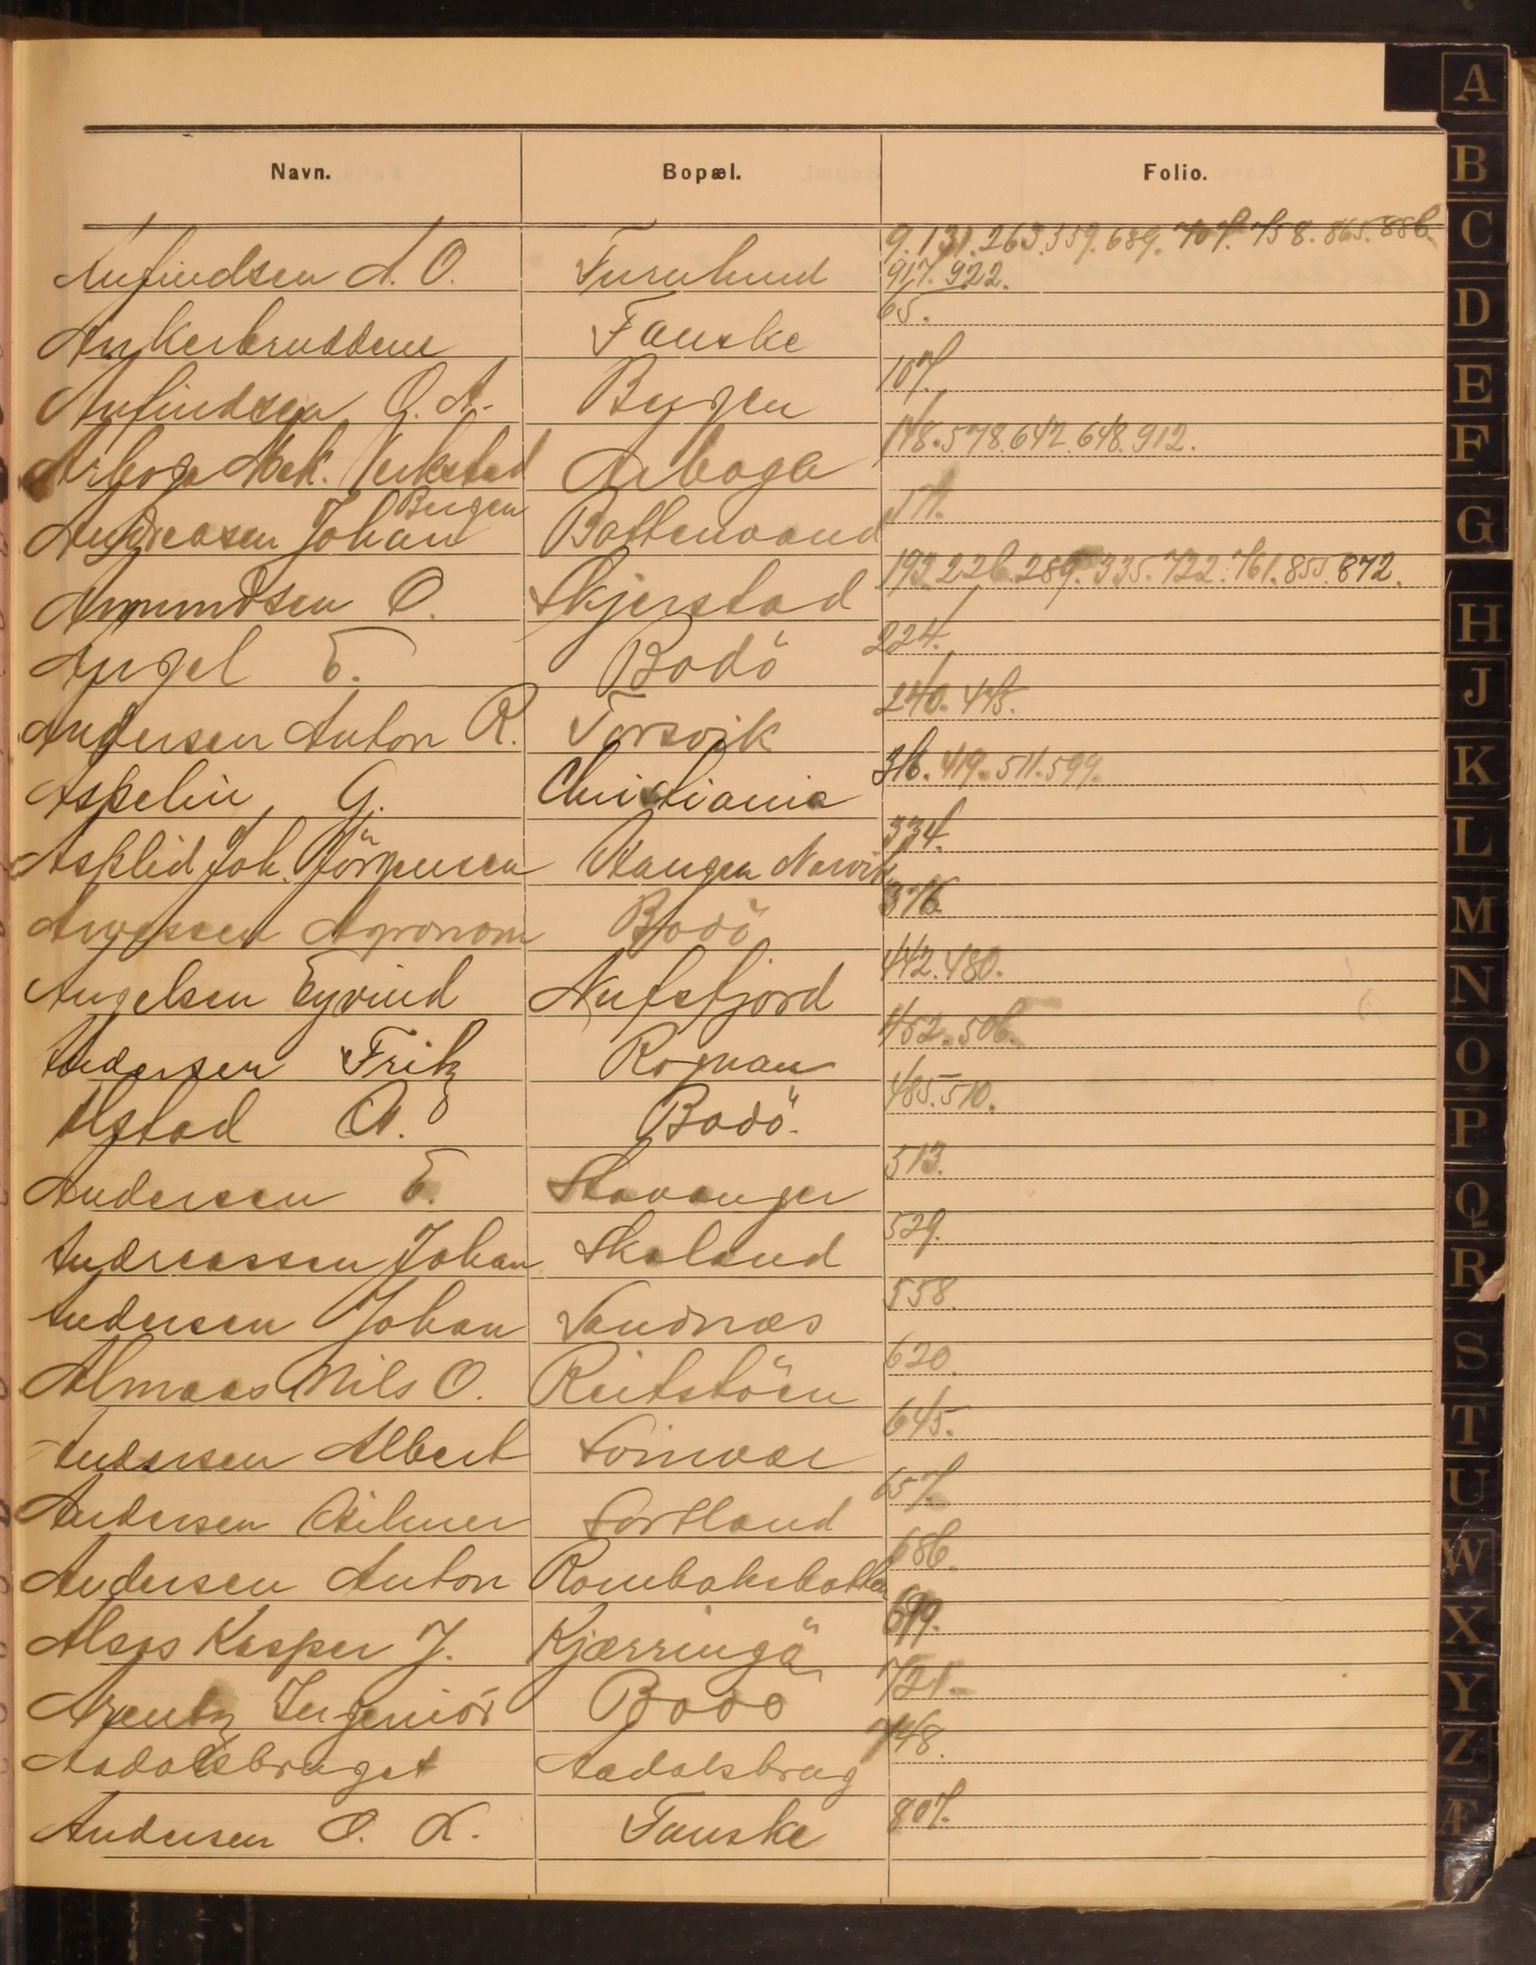 Navn. Bopæl. Folio.
Anfindsen A. O. Furulund 9. 131. 263. 359. 689. 707. 758. 865. 886.
917. 922.
Ankerbruddene Fauske 65.
Anfindsen O. A. Bergen 107.
Arboga Mek. Verkstad Arboga 148. 578. 642. 648. 912.
Bergen
Andreasen Johan Bottenvand 171.
Amundsen O. Skjerstad 193. 226. 289. 335. 722. 761. 855. 872.
Angel E. Bodö 224.
Andersen Anton R. Torsvik 240. 445.
Aspelin, G. Christiania 316. 419. 511. 599.
Asplid Joh. Jörgensen Narvik 334.
Agronom Bodö 376.
Angelsen Eyvind Nufsfjord 442. 480.
Andersen Fritz Rognan 452. 506.
Alstad A. Bodö. 485. 510.
Andersen E. Stavanger 513.
Andreassen Johan Skaland 529.
Andersen Johan Sandnæs 558.
Almaas Nils O. Reitstöen 620.
Andersen Albert 645.
Andersen Hilmer Sortland 657.
Andersen Anton Rombaksbotten 686.
Alsos Kasper J. Kjærringö 699.
Arentz Ingeniör Bodö 721.
Aadalsbruget Aadalsbrug 748.
Andersen O. L. Fauske 807.
A
B
C
D
E
F
G
H
J
K
L
M
N
O
P
Q
R
S
T
U
W
X
Y
Z
Æ